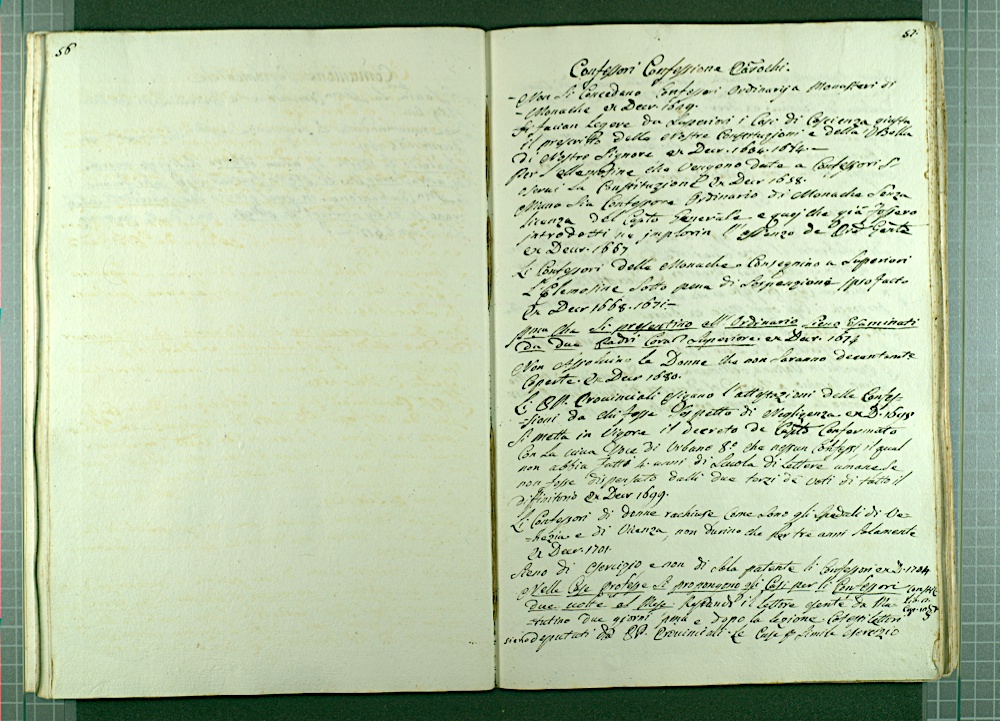 56
57.
Confessori Confessione Parochi.
- Non si concedano Confessori Ordinarij a Monasteri di
Monache ex Decr. 1649.
Si faccian legere da Superiori i Casi di Coscienza giusta
il prescritto delle Nostre Constituzioni e della Bolla
di Nostro Signore ex Decr. 1604. 1614.
Per l'elemosine che vengono date a Confessori s'
servi la Constituzione ex Decr 1658.
Niuno sia Confessore Ordinario di Monache senza
licenza del Capto Generale e quei che già fossero
introdotti ne implorin l'assenzo de
ex Decr. 1667
Li Confessori delle Monache Consegnino a Superiori
l'Elemosine sotto pena di Sospenzione ipso facto
Ex Decr 1668. 1671.
pma che si presentino all'Ordinario sieno Esaminati
da due Padri Superiore. ex Decr. 1674
Non Assolvino le Donne che non saranno decentemte
Coperte. Ex Decr 1680.
Li PP. Provinciali esigano l'attestazioni delle Confes-
sioni da chi fosse sospetto di Negligenza ex D.
Si metta in Vigore il decreto de Capto Confermato
con la viva Voce di Urbano 8.º che nessun Confessi il qual
non abbia fatto 4. anni di Scuola di lettere umane se
non fosse dispensato dalli due terzi de voti di tutto il
Diffinitorio Ex Decr 1699.
Li Confessori di donne rachiuse come sono gli Spedali di Ve-
nezia e di Vicenza, non durino che per tre anni solamente
Ex Decr. 1701.
Sieno di esercizio e non di sola patente li Confessori ex D. 1704
Nelle Case professe si proponghino gli Casi per li Confessori
due volte al Mese Restando il lettore esente da Ma-
tutino due giorni pma e dopo la lezione Cotesti lettori
sieno deputati da PP. Provinciali. Le Case p simile esercizio